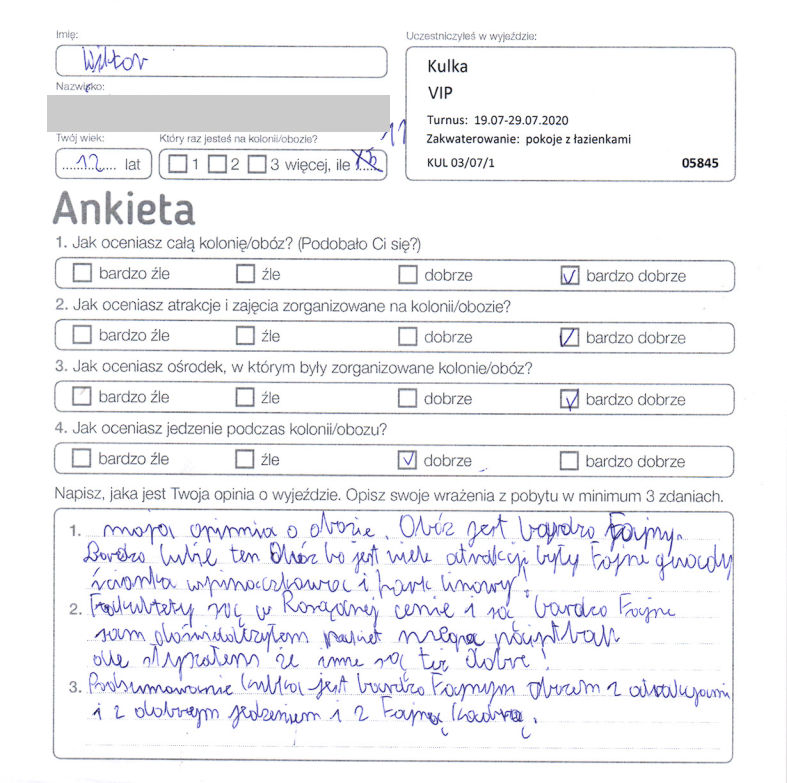 Imię:
Wiktor
Nazwisko:
Twój wiek:
12 lat
Który raz jesteś na kolonii/obozie?
1 2 3 więcej, ile
11
Uczestniczyłeś w wyjeździe:
Kulka
VIP
Turnus: 19.07-29.07.2020
Zakwaterowanie: pokoje z łazienkami
KUL 03/07/1 05845
Ankieta
1. Jak oceniasz całą kolonię/obóz? (Podobało Ci się?)
bardzo źle źle dobrze bardzo dobrze
2. Jak oceniasz atrakcje i zajęcia zorganizowane na kolonii/obozie?
bardzo źle źle dobrze bardzo dobrze
3. Jak oceniasz ośrodek, w którym były zorganizowane kolonie/obóz?
bardzo źle źle dobrze bardzo dobrze
4. Jak oceniasz jedzenie podczas kolonii/obozu?
bardzo źle źle dobrze bardzo dobrze
Napisz, jaka jest Twoja opinia o wyjeździe. Opisz swoje wrażenia z pobytu w minimum 3 zdaniach.
1. moja opinnia o obozie. Obóz jest bardzo fajny.
Bardzo lubię ten Obóz bo jest wiele atrakcji były fajne gwiazdy
ścianka wspinaczkowa i park linowy!
2. Fakultety są w Rozsądnej cenie i są bardzo Fajne
sam doświadczyłem pakiet mega paintball
ale słyszałem że inne są też dobre!
3. Podsumowanie kulka jest bardzo Fajnym obozem z atrakcjami
i z dobrym jedzeniem i z Fajną kadrą.